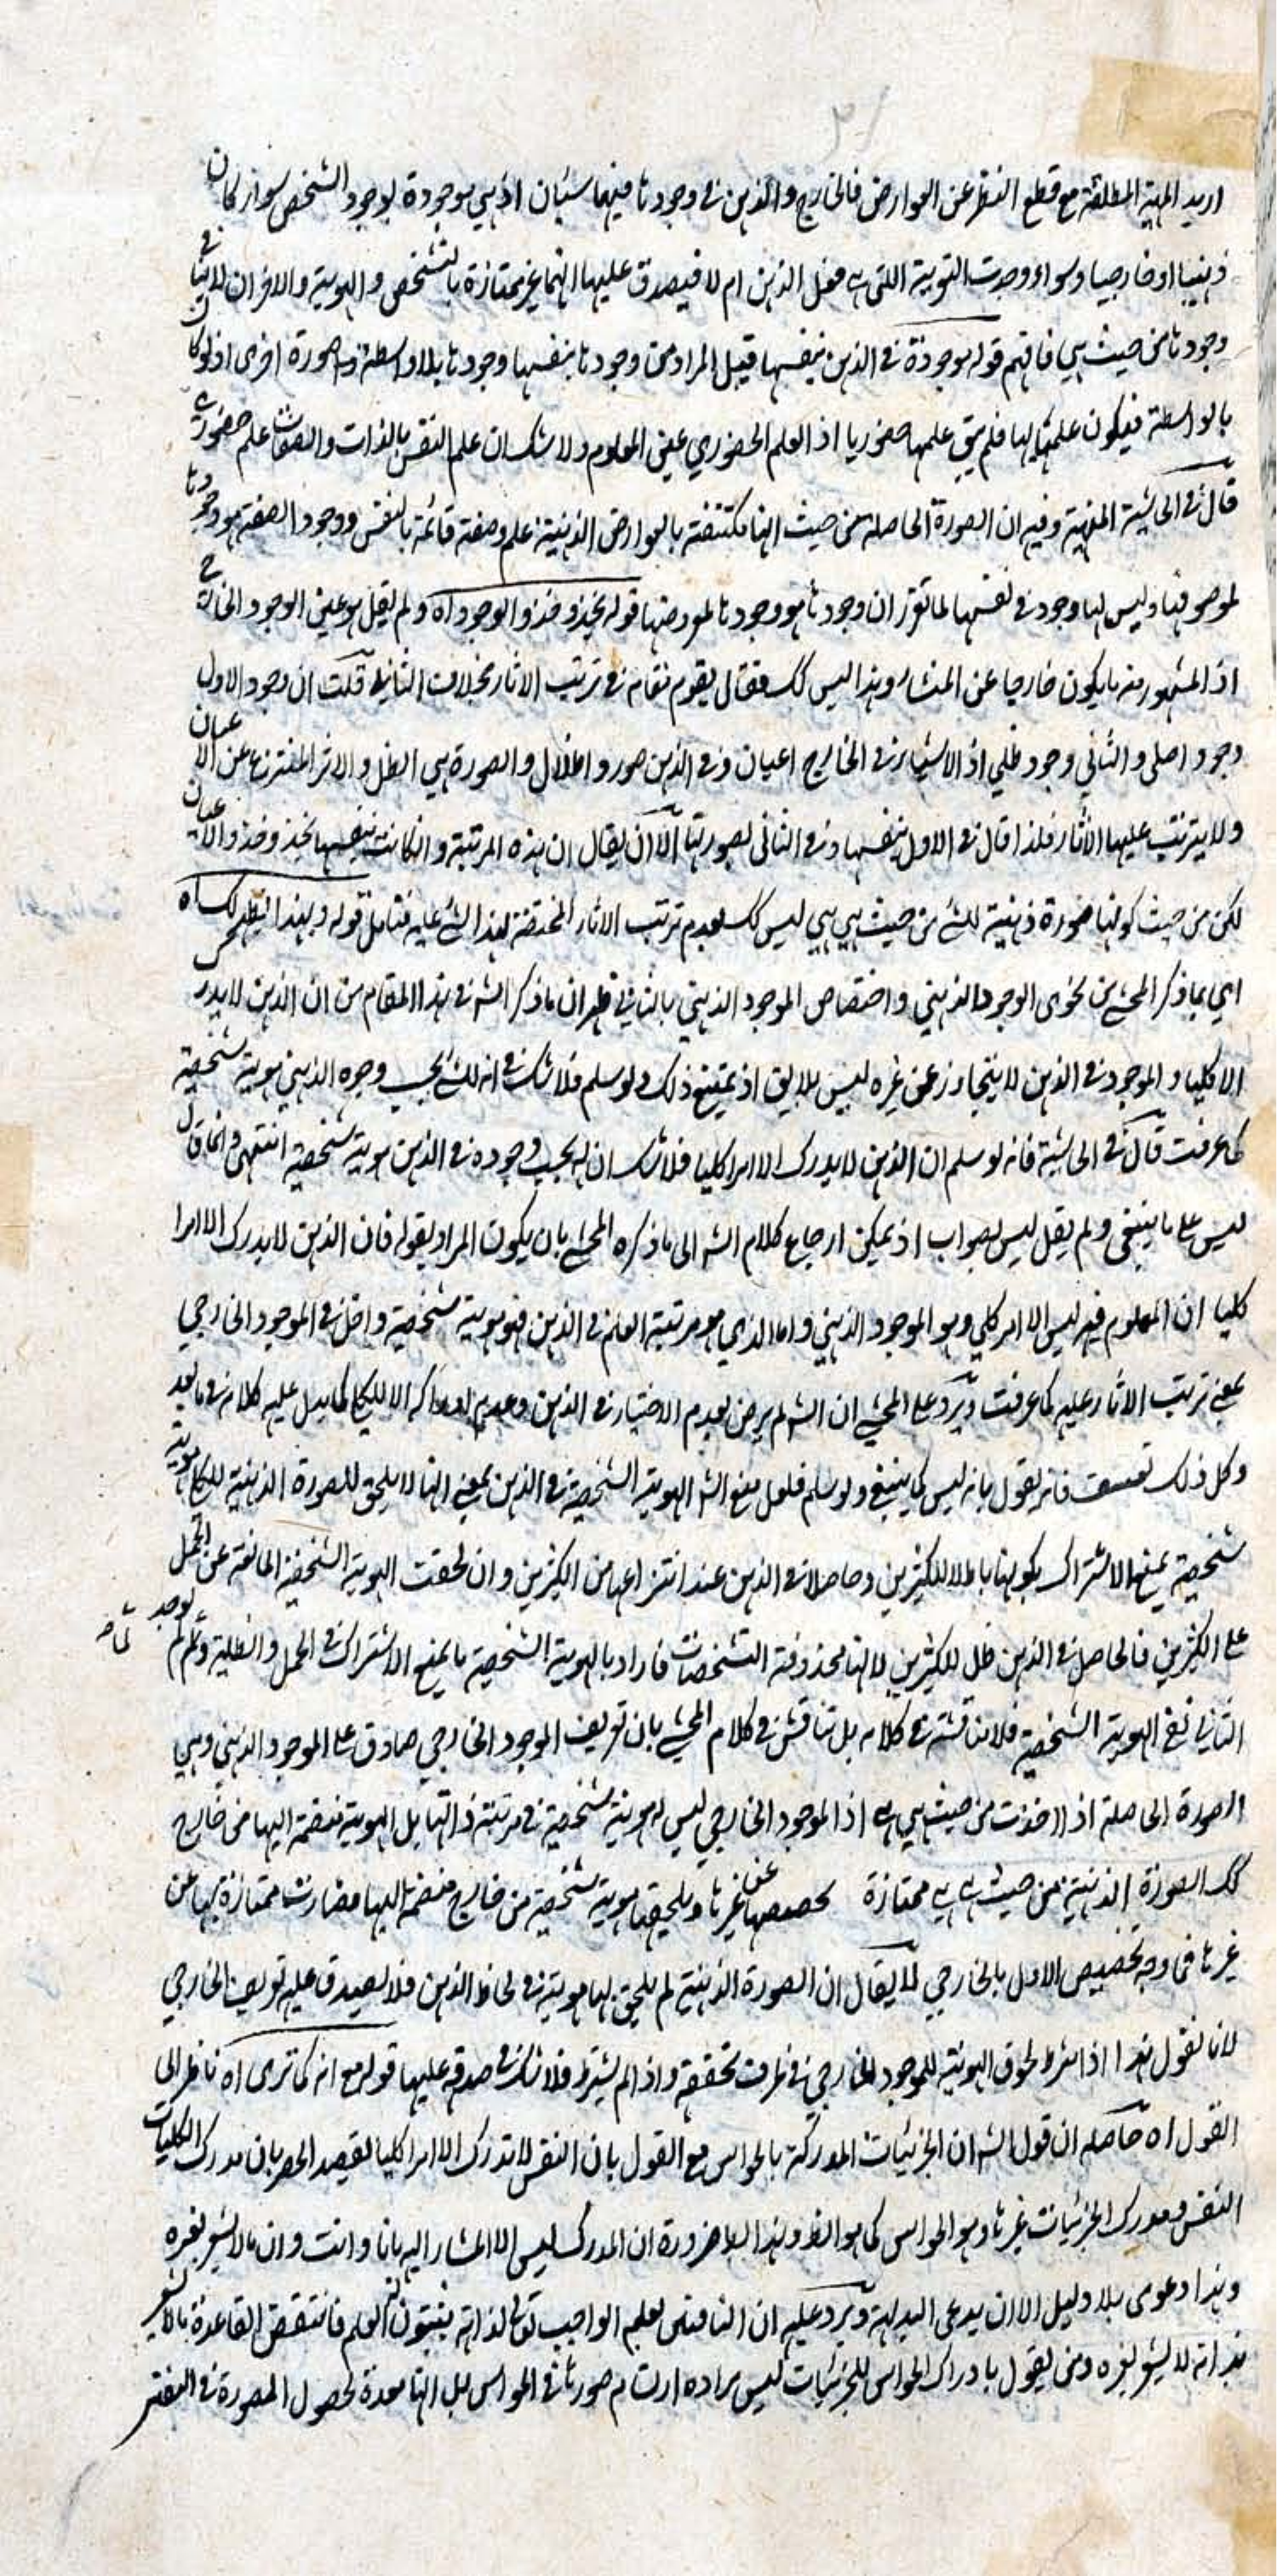 اريد المهية المطلقة مع قطع النظر عن العوارض فالخارج والذهن في وجودها فيهما سيّان اذ هي موجودة لوجود الشخص سواء كان
ذهنيا او خارجيا وسواء وجدت التعرية اللتي هي فعل الذهن ام لا فيصدق عليها انها غير ممتازة بالتشخص والهوية والاقران للاثنا في
وجودها من حيث هي فافهم قوله موجودة في الذهن بنفسها قيل المراد من وجودها بنفسها وجودها بلا واسطة صورة اخرى اذ لو كان
بالواسطة فيكون علمه بها فلم يبق علمها حضوريا اذ العلم الحضوري عين المعلوم ولا شك ان علم النفس بالذات والصفات علم حضوري
قال في الحاشية المنهية وفيه ان الصورة الحاصلة من حيث انها مكتنفة بالعوارض الذهنية علم وصفة قائمة بالنفس ووجود الصفة هو وجودها
لموصوفها وليس لها وجود في نفسها لما تقرر ان وجودها هو وجودها لمعروضها قوله يحذو حذو الوجود اه ولم يقل هو عين الوجود الخارج
اذ المشهور منه ما يكون خارجا عن المشاعر وهذا ليس كك فقال يقوم مقامه في ترتب الاثار بخلاف الثاني قلت ان وجود الاول
وجود اصلي والثاني وجود ظلي اذ الاشياء في الخارج اعيان وفي الذهن صور واظلال والصورة هي الظل والاثر المنتزع عن الاعيان
ولا يترتب عليها الاثار فلذا قال في الاول بنفسها وفي الثاني بصورتها الا ان يقال ان هذه المرتبة وان كانت بنفسها يحذو حذو الاعيان
لكن من حيث كونها صورة ذهنية للشئ من حيث هي هي ليس كك لعدم ترتب الاثار المختصة لهذا الشئ عليه فتامل قوله وبهذا ينظهر لك اه
اي بما ذكر المحشي من نحوي الوجود الذهني واختصاص الموجود الذهني بالثاني ظهر ان ما ذكر الشه في هذا المقام من ان الذهن لا يدرك
الا كليا والموجود في الذهن لا يتجاوز عن غيره ليس بلايق اذ يمتنع ذلك ولو سلم فلا شك في انه للشئ بحسب وجوده الذهني هوية شخصية
كما عرفت قال في الحاشية فانه لو سلم ان الذهن لا يدرك الا امرا كليا فلا شك ان له بحسب وجوده في الذهن هوية شخصية انتهى وانما قال
ليس على ما ينبغي ولم يقل ليس بصواب اذ يمكن ارجاع كلام الشه الى ما ذكره المحشي بان يكون المراد بقوله فان الذهن لا يدرك الا امرا
كليا ان المعلوم فيه ليس الا امر كلي وهو الموجود الذهني واما الذي هو مرتبة العلم في الذهن فهو هوية شخصية داخل في الموجود الخارجي
بمعنى ترتب الاثار عليه كما عرفت ويرد على المحشي ان الشه لم يرض بعدم الاختيار في الذهن وعدم ادراكه الا للكلي كما يدل عليه كلامه في ما بعد
وكل ذلك تعسف فانه يقول بانه ليس كما ينبغي ولو سلم فلعل منع الشه الهوية الشخصية في الذهن بمعنى انها لا يلحق للصورة الذهنية للكلي هوية
شخصية يمنع الاشتراك بكونها باطلا للكثيرين وحاصلا في الذهن عند انتزاعها من الكثيرين وان لحقت الهوية الشخصية المانعة عن الحمل
على الكثيرين فالحاصل في الذهن ظل للكثيرين لانها محذوفة التشخصات فاراد بالهوية الشخصية ما يمنع الاشتراك في الحمل والظلية ولما لم يوجد
الثاني نفى الهوية الشخصية فلا مناقشة في كلامه بل تناقش في كلام المحشي بان تعريف الموجود الخارجي صادق على الموجود الذهني وهي
الصورة الحاصلة اذا اخذت من حيث هي هي اذ الموجود الخارجي ليس له هوية شخصية في مرتبة ذاتها بل الهوية منضمة اليها من خارج
كك الصورة الذهنية من حيث هي هي ممتازة بخصوصها عن غيرها ويلحقها هوية شخصية من خارج منضمة اليها فصارت ممتازة بها عن
غيرها فما وجه تخصيص الاول بالخارجي لا يقال ان الصورة الذهنية لم يلحق بها هوية في لحاظ الذهن فلا يصدق عليه تعريف الخارجي
لانا نقول هذا اذا اشترط لحوق الهوية للموجود الخارجي في ظرف تحققه واذا لم يشترط فلا شك في صدقه عليها قوله مع انه كما ترى اه ناظر الى
القول اه حاصله ان قول الشه ان الجزئيات المدركة بالحواس مع القول بان النفس لا تدرك الا امرا كليا لقصد الحصر بان مدرك الكليات
النفس ومدرك الجزئيات غيرها وهو الحواس كما هو الظ وهذا بط ضرورة ان المدرك ليس الا المشار اليه بانا وانت وان ما لا يشعر بغيره
وهذا دعوى بلا دليل الا ان يدعى البداهة ويرد عليه ان النافين لعلم الواجب تعالى لذاته يثبتون العلم فانتقض القاعدة بما لا يشعر
بذاته لا يشعر بغيره ومن يقول بادراك الحواس للجزئيات ليس مراده ارتسام صورها في الحواس بل انها معدة لحصول الصورة في النفس